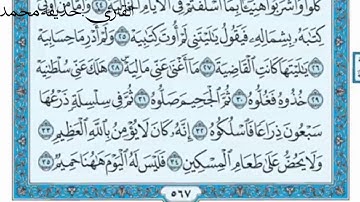 كُلُوا۟ وَٱشْرَبُوا۟ هَنِيٓـًٔۢا بِمَآ أَسْلَفْتُمْ فِى ٱلْأَيَّامِ ٱلْخَالِيَةِ ٢٤ وَأَمَّا مَنْ أُوتِىَ
كِتَـٰبَهُۥ بِشِمَالِهِۦ فَيَقُولُ يَـٰلَيْتَنِى لَمْ أُوتَ كِتَـٰبِيَهْ ٢٥ وَلَمْ أَدْرِ مَا حِسَابِيَهْ
٢٦ يَـٰلَيْتَهَا كَانَتِ ٱلْقَاضِيَةَ ٢٧ مَآ أَغْنَىٰ عَنِّى مَالِيَهْ ٢٨ هَلَكَ عَنِّى سُلْطَـٰنِيَهْ
٢٩ خُذُوهُ فَغُلُّوهُ ٣٠ ثُمَّ ٱلْجَحِيمَ صَلُّوهُ ٣١ ثُمَّ فِى سِلْسِلَةٍ ذَرْعُهَا
سَبْعُونَ ذِرَاعًا فَٱسْلُكُوهُ ٣٢ إِنَّهُۥ كَانَ لَا يُؤْمِنُ بِٱللَّهِ ٱلْعَظِيمِ ٣٣
وَلَا يَحُضُّ عَلَىٰ طَعَامِ ٱلْمِسْكِينِ ٣٤ فَلَيْسَ لَهُ ٱلْيَوْمَ هَـٰهُنَا حَمِيمٌ ٣٥
٥٦٧